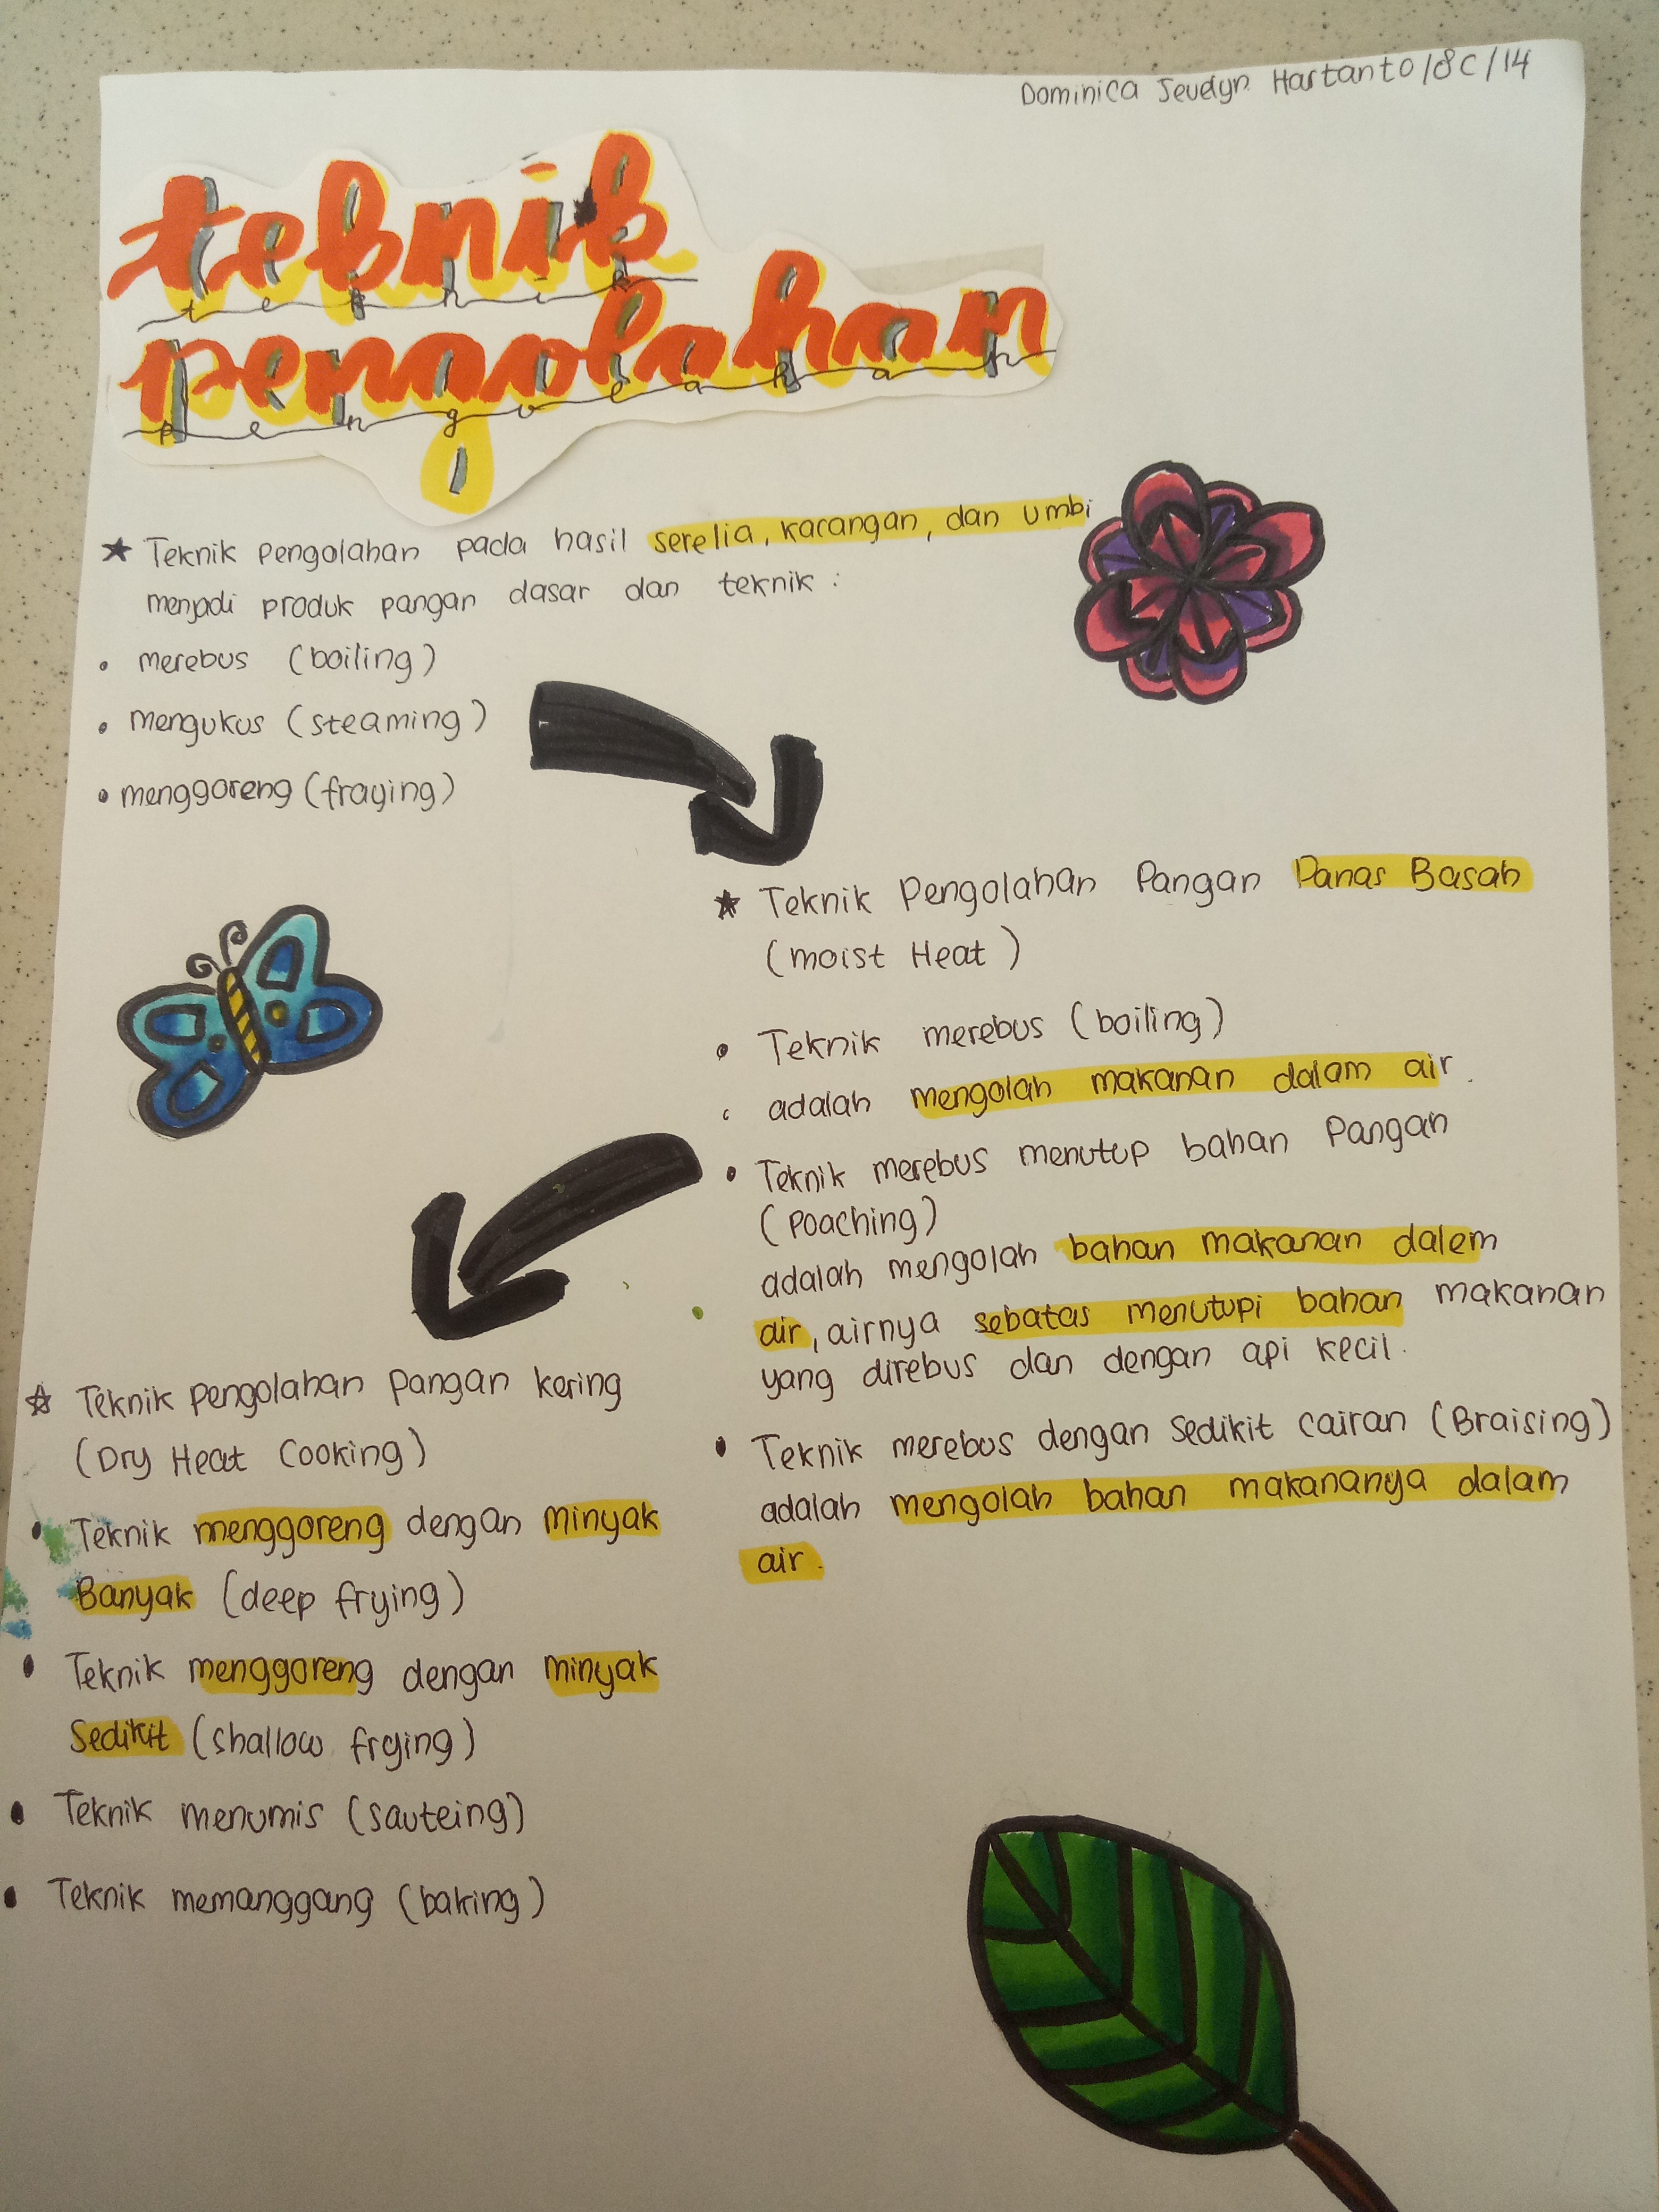 Dominica Jevelyn Hartanto/8C/14
teknik
teknik
pengolahan
pengolahan
★ Teknik pengolahan pada hasil serelia, kacangan, dan umbi
menjadi produk pangan dasar dan teknik :
• merebus (boiling)
• mengukus (steaming)
• menggoreng (fraying)
★ Teknik Pengolahan Pangan Panas Basah
(moist Heat)
• Teknik merebus (boiling)
adalah mengolah makanan dalam air.
• Teknik merebus menutup bahan Pangan
(poaching)
adalah mengolah bahan makanan dalem
air, airnya sebatas menutupi bahan makanan
yang direbus dan dengan api kecil.
• Teknik merebus dengan sedikit cairan (Braising)
adalah mengolah bahan makananya dalam
air.
☆ Teknik pengolahan pangan kering
(Dry Heat Cooking)
• Teknik menggoreng dengan minyak
Banyak (deep frying)
• Teknik menggoreng dengan minyak
Sedikit (shallow frying)
• Teknik menumis (sauteing)
• Teknik memanggang (baking)